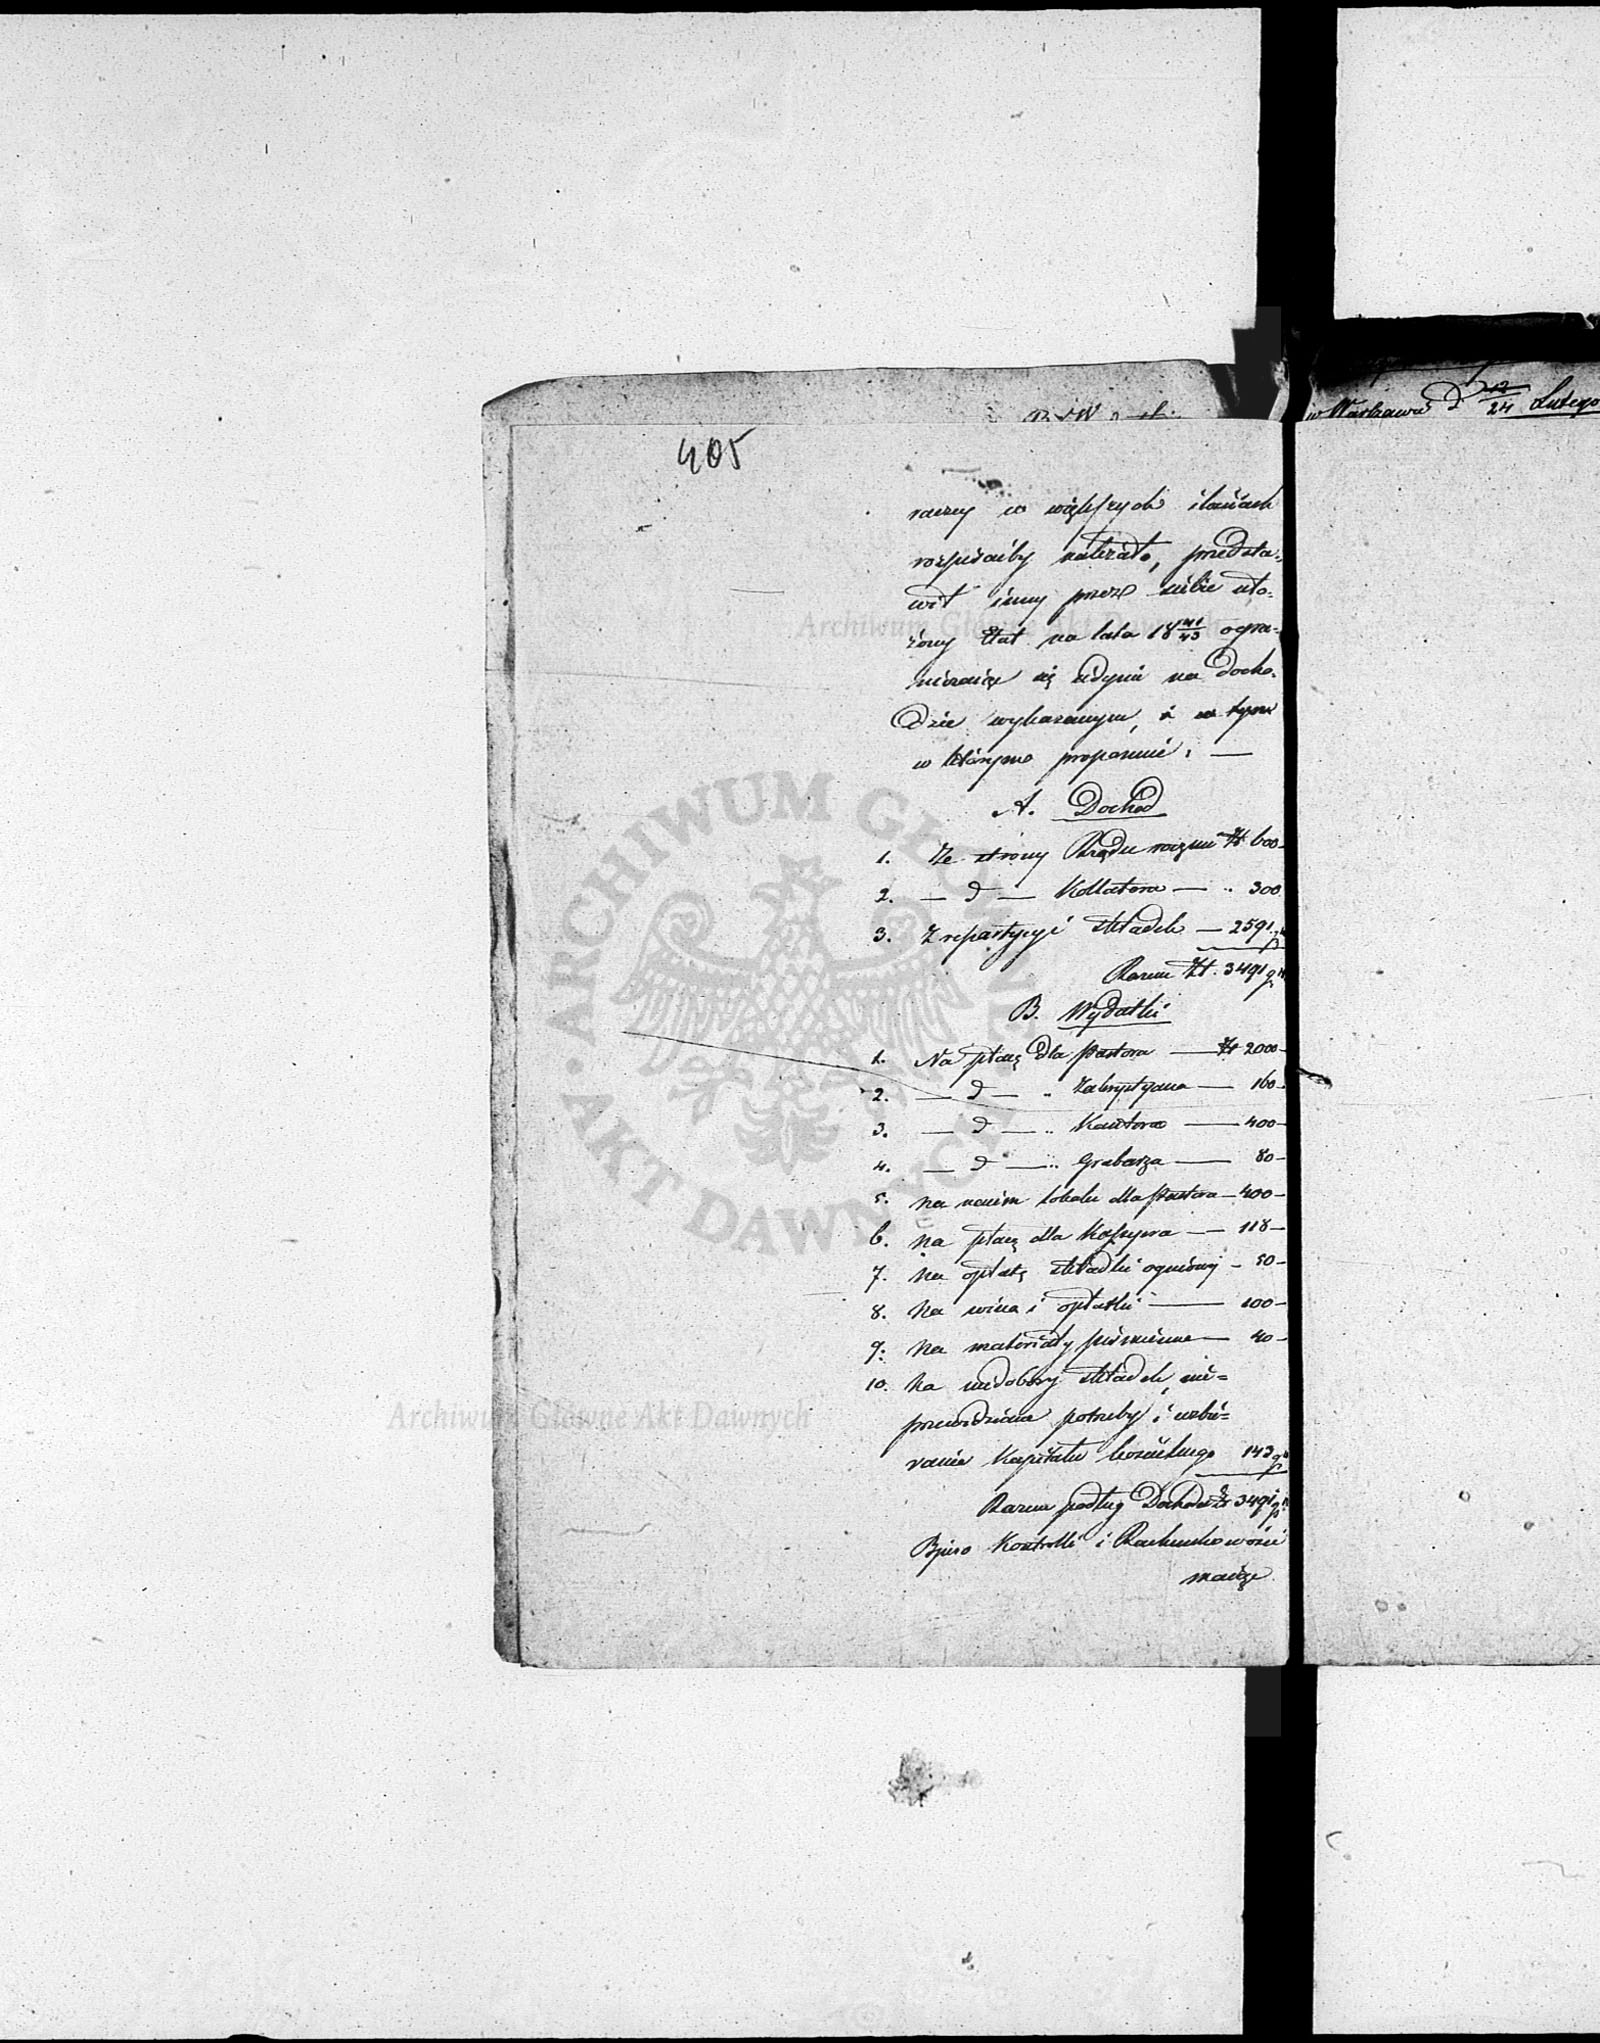 w Warszawie d 12/24 Lutego
405
raczey w większych ilościach
rozpisaćby należało, przedsta=
wił inny przez siebie uło=
żony Etat na lata 18 41/43 ogra=
niczając się jedynie na docho=
dzie wykazanym, i w tym
w którym proponuie: —
A. Dochod
1. Ze strony Rządu rocznie Zł 600-
2. — d — Kollatora — „ 300
3. Z repartycyi składek — 2591.
Razem Zł. 3491 g
B. Wydatki
1. Na płacę dla Pastora — Zł 2000-
2. — d — „ Zakrystyana — 160-
3. — d — „ Kantora — 400-
4. — d — „ Grabarza — 80-
5. Na naiem lokalu dla Pastora - 400-
6. Na płacę dla Kassyera — 118-
7. Na opłatę składki ogniowej - 50-
8. Na wina i opłatki — 100-
9. Na materiały piśmienne — 40-
10. Na niedobory składek, nie=
przewidziane potrzeby i uzbie=
ranie Kapitału kościelnego 143 g
Razem podług Dochodu Zł 3491 g
Bióro Kontrolli i Rachunkowości
maiące
Archiwum Główne Akt Dawnych
ARCHIWUM GŁÓWNE · AKT DAWNYCH ·
Archiwum Główne Akt Dawnych